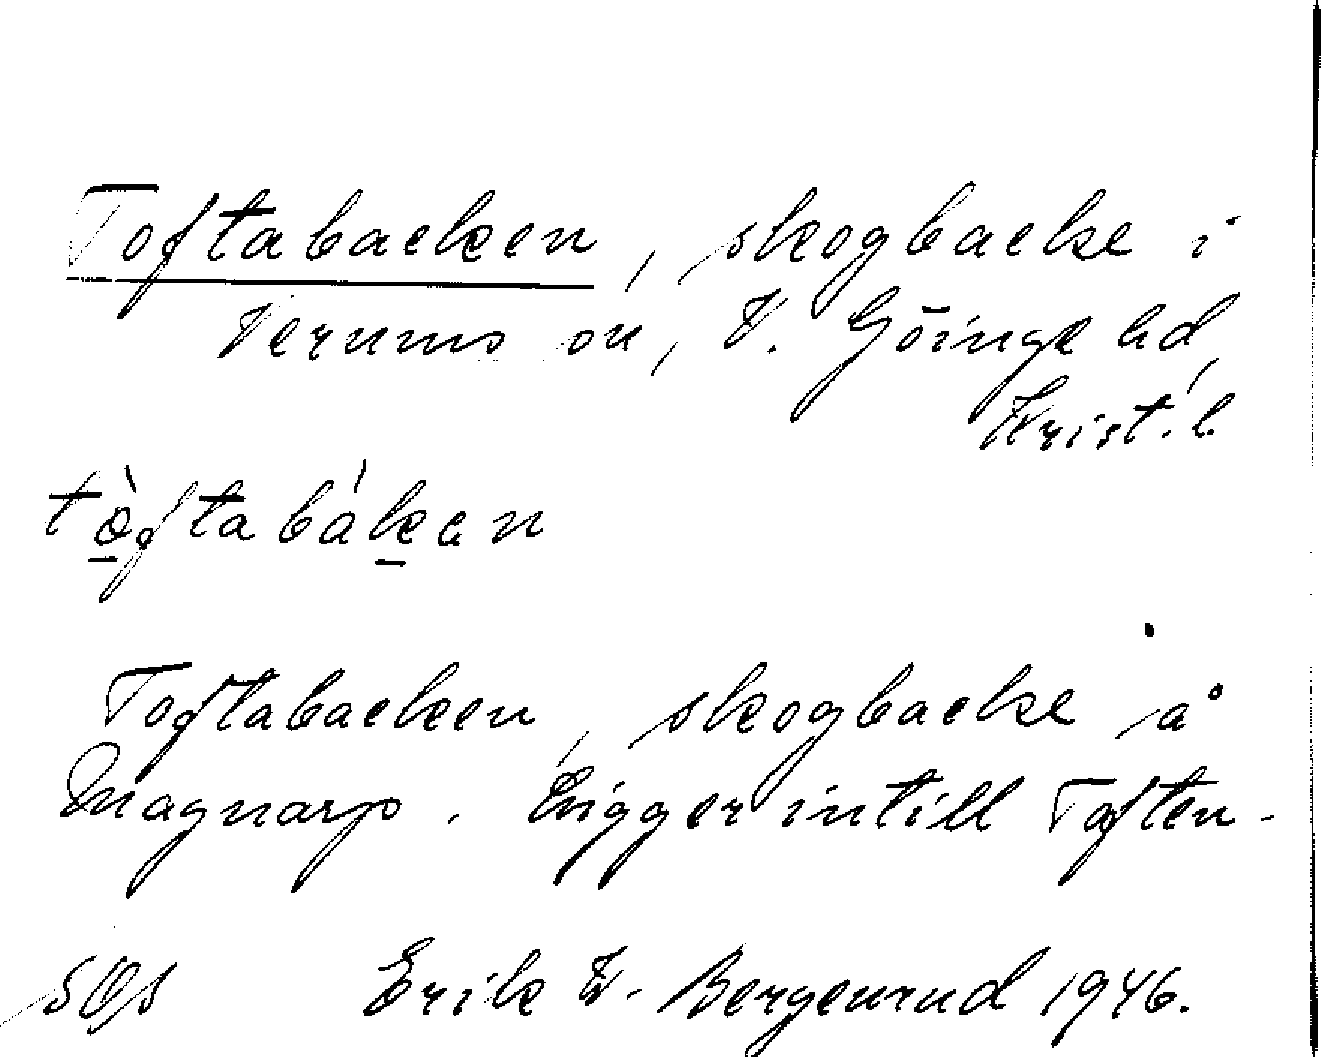 Toftabacken, skogbacke i
Verums sn, V. Göinge hd,
Krist. l.
tòftabákan
Toftabacken, skogbacke å
Magnarp. Ligger intill Toften.
Erik W. Bergenrud 1946.